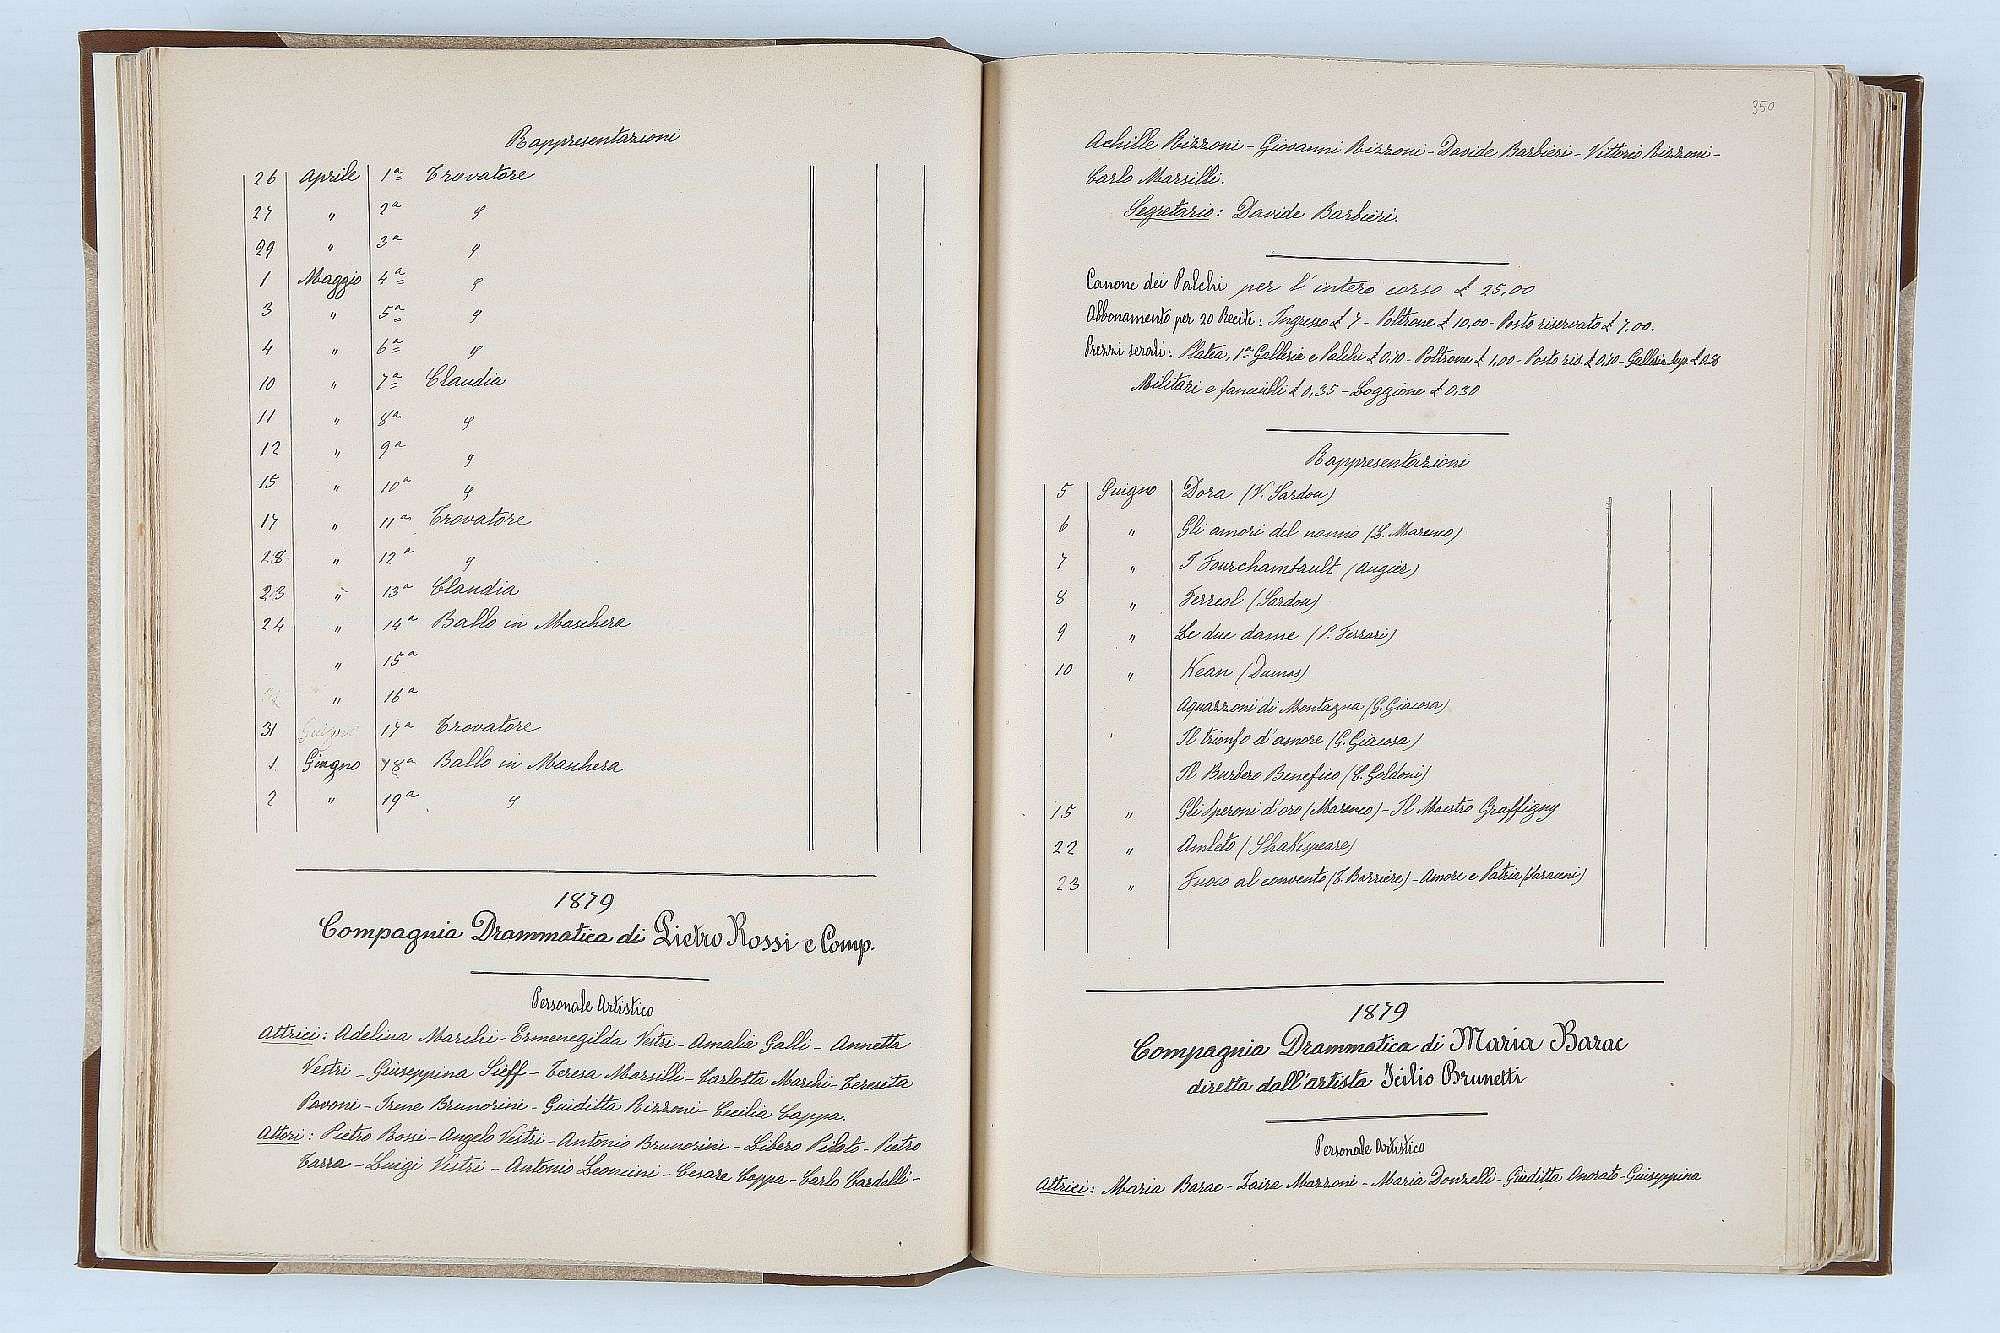 Rappresentazioni
26 Aprile 1ª Trovatore
27 " 2ª "
29 " 3ª "
1 Maggio 4ª "
3 " 5ª "
4 " 6ª "
10 " 7ª Claudia
11 " 8ª "
12 " 9ª "
15 " 10ª "
17 " 11ª Trovatore
28 " 12ª "
23 " 13ª Claudia
24 " 14ª Ballo in Maschera
" 15ª
" 16ª
31 Giugno 17ª Trovatore
1 Giugno 18ª Ballo in Maschera
2 " 19ª "
1879
Compagnia Drammatica di Pietro Rossi e Comp.
Personale Artistico
Attrici: Adelina Marchi - Ermenegilda Vestri - Amalia Galli - Annetta
Vestri - Giuseppina Sieff - Teresa Marsilli - Carlotta Marchi - Teresita
Pavoni - Irene Brunorini - Guiditta Rizzoni - Cecilia Cappa.
Attori: Pietro Rossi - Angelo Vestri - Antonio Brunorini - Libero Pilotto - Pietro
Zarra - Luigi Vestri - Antonio Leoncini - Cesare Cappa - Carlo Cardelli -
350
Achille Rizzoni - Giovanni Rizzoni - Davide Barbieri - Vittorio Rizzoni -
Carlo Marsilli.
Segretario: Davide Barbieri.
Canone dei Palchi per l'intero corso £ 25,00
Abbonamento per 20 Recite: Ingresso £ 7 - Poltrone £ 10,00 - Posto riservato £ 7.00.
Prezzi serali: Platea, 1ª Galleria e Palchi £ 0,70 - Poltrone £ 1,00 - Posto ris £ 0,70 - Galleria
Militari e fanciulli £ 0,35 - Loggione £ 0,30
Rappresentazioni
5 Guigno Dora (V. Sardou)
6 " Gli amori del nonno (L. Marenco)
7 " I Fourchambault (Augier)
8 " Ferreol (Sardou)
9 " Le due dame (P. Ferrari)
10 " Kean (Dumas)
Aquazzoni di Montagna (G. Giacosa)
Il trionfo d'amore (G. Giacosa)
Il Burbero Benefico (C. Goldoni)
15 " Gli Speroni d'oro (Marenco) - Il Maestro Graffigny
22 " Amleto (Shakespeare)
23 " Fuoco al convento (T. Barrière) - Amore e Patria
1879
Compagnia Drammatica di Maria Barac
diretta dall'artista Icilio Brunetti
Personale Artistico
Attrici: Maria Barac - Zaira Mazzoni - Maria Donzelli - Giuditta Onorato - Guiseppina